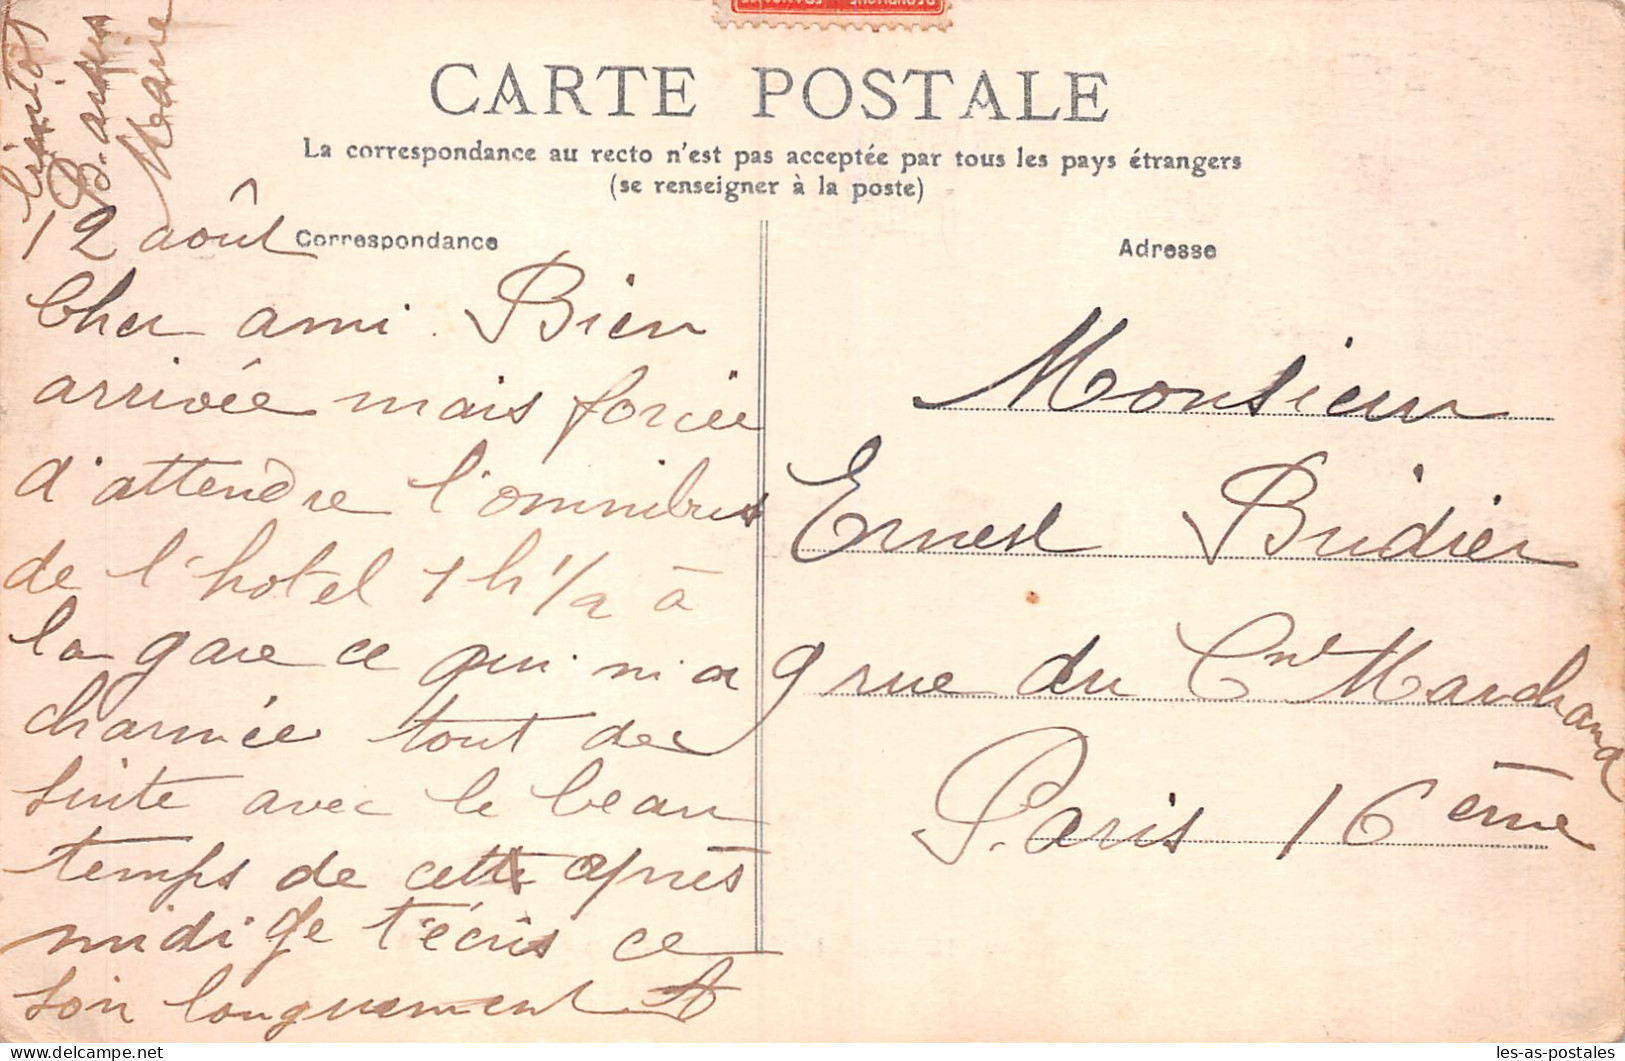 CARTE POSTALE
La correspondance au recto n'est pas acceptée par tous les pays étrangers
(se renseigner à la poste)
Correspondance
Adresse
12 août
Cher ami. Bien
arrivée mais forcée
d'attendre l'omnibus
de l'hotel 1 h 1/2 à
la gare ce qui m'a
charmée tout de
suite avec le beau
temps de cette après
midi Je t'écris ce
soir longuement A
bientôt
B. amies
Marie
Monsieur
Ernest Bridier
9 rue du Cne Marchand
Paris 16ème
les-as-postales